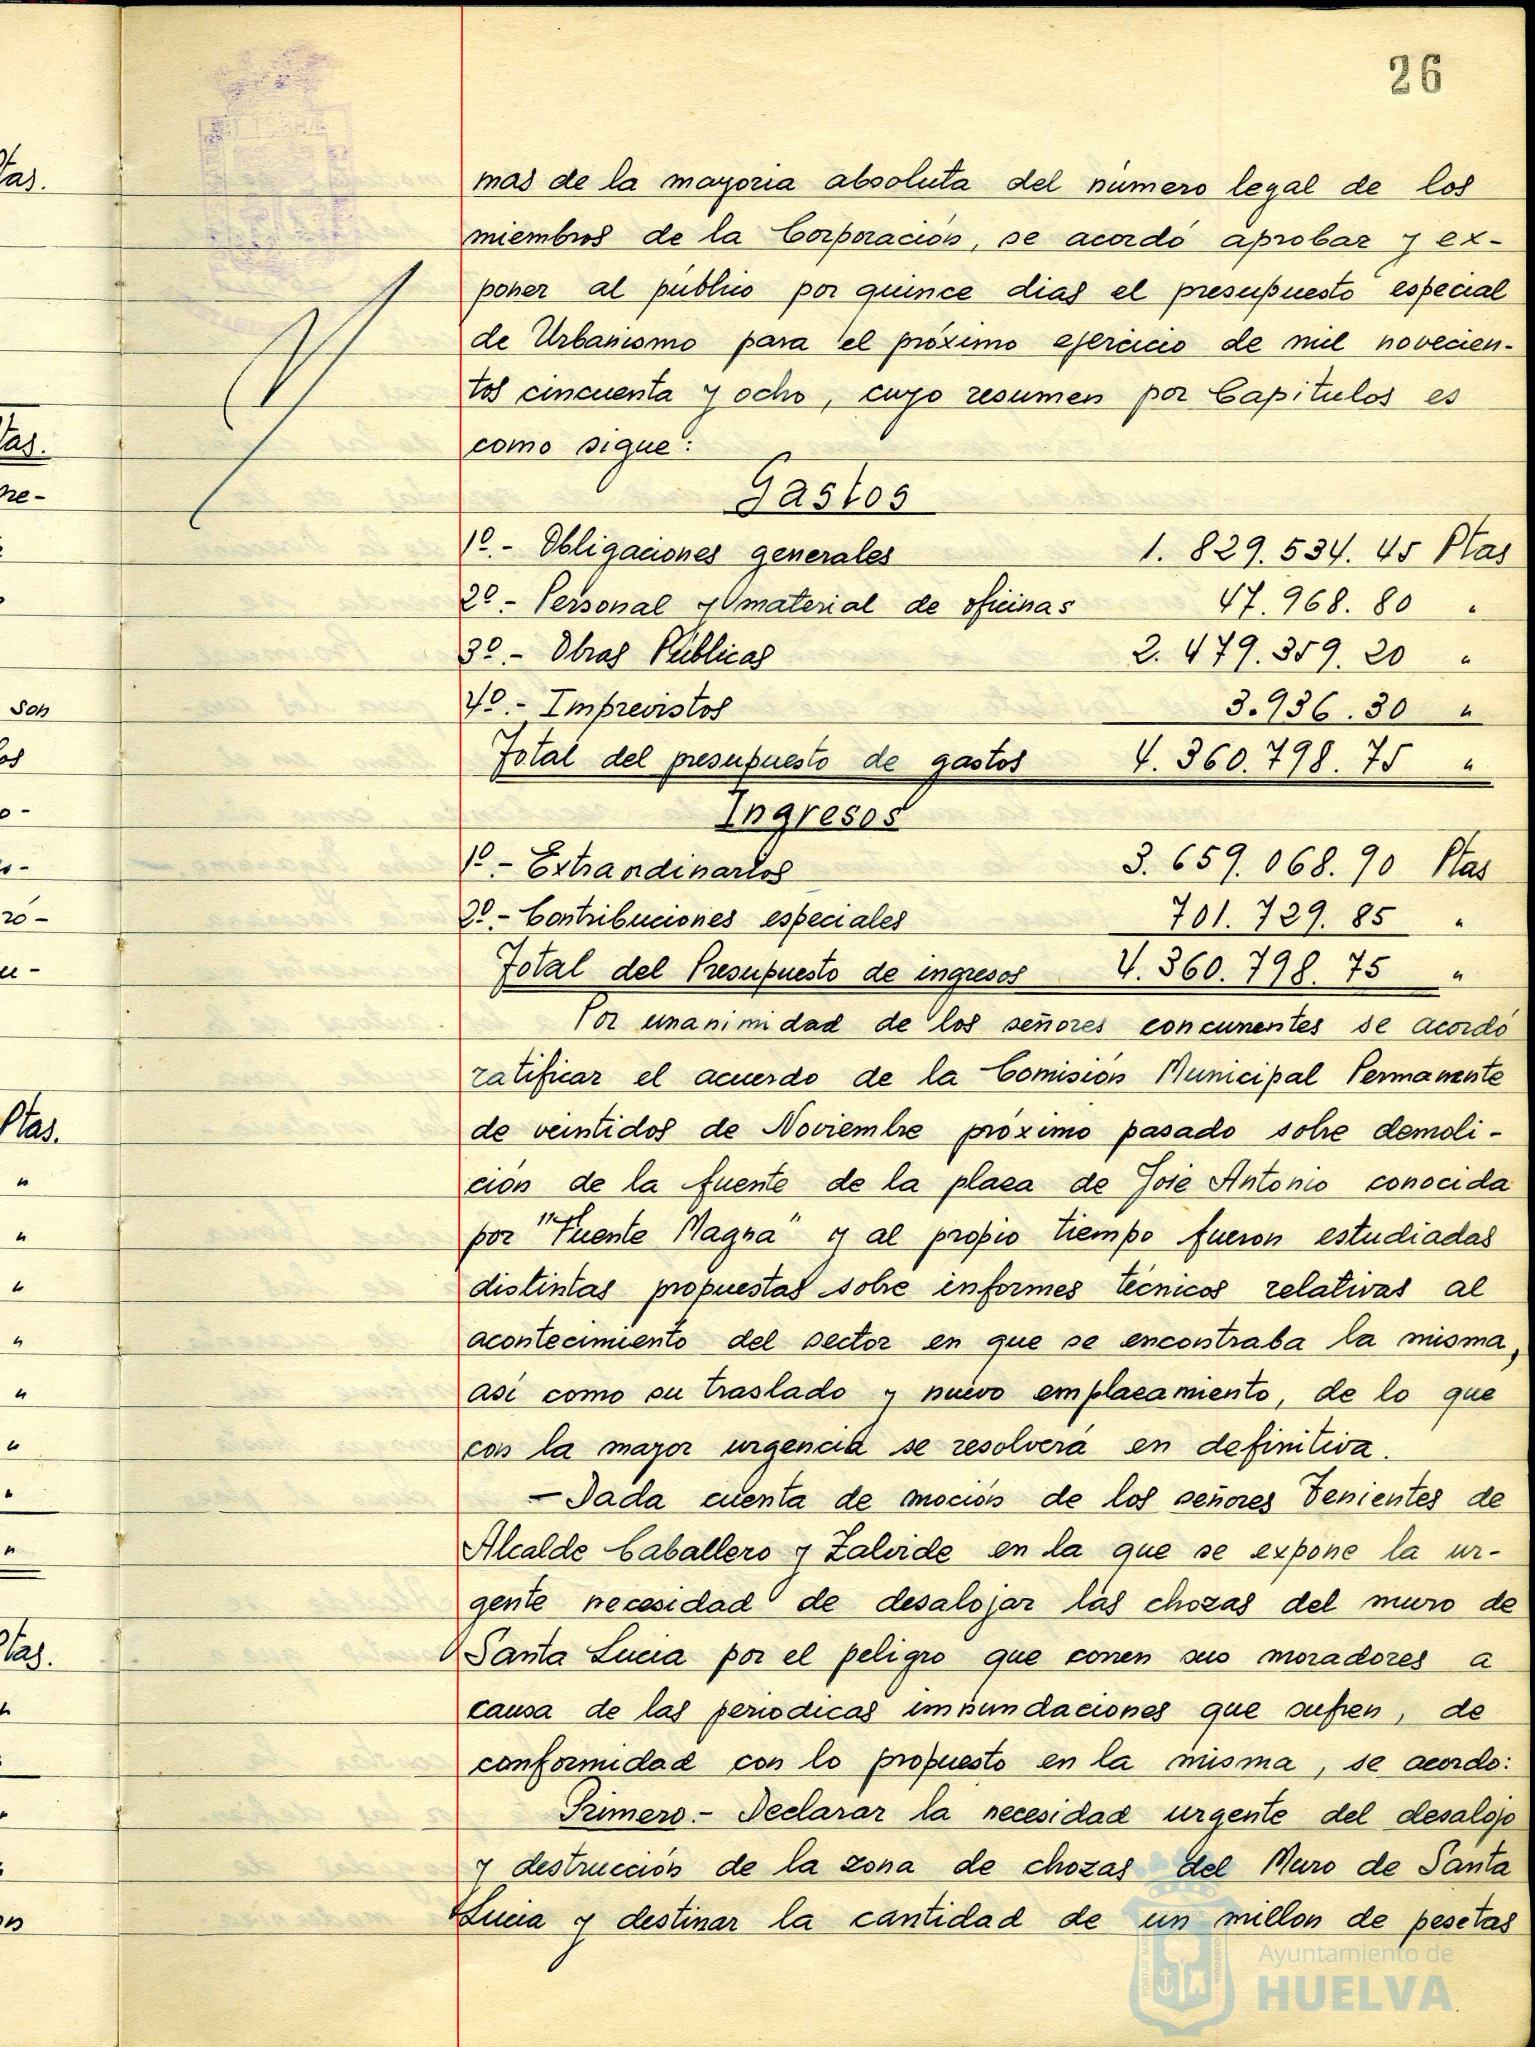 26
mas de la mayoria absoluta del número legal de los
miembros de la Corporación, se acordó aprobar y ex-
poner al público por quince dias el presupuesto especial
de Urbanismo para el próximo ejercicio de mil novecien-
tos cincuenta y ocho, cuyo resumen por Capitulos es
como sigue:
Gastos
1º.- Obligaciones generales 1. 829.534. 45 Ptas
2º.- Personal y material de oficinas 47.968. 80 "
3º.- Obras Públicas 2. 479.359. 20 "
4º.- Imprevistos 3.936.30 "
Total del presupuesto de gastos 4. 360.798. 75 "
Ingresos
1º.- Extraordinarios 3. 659. 068. 90 Ptas
2º.- Contribuciones especiales 701. 729. 85 "
Total del Presupuesto de ingresos 4. 360. 798. 75 "
Por unanimidad de los señores concurrentes se acordó
ratificar el acuerdo de la Comisión Municipal Permanente
de veintidos de Noviembre próximo pasado sobre demoli-
ción de la fuente de la plaza de José Antonio conocida
por "Fuente Magna" y al propio tiempo fueron estudiadas
distintas propuestas sobre informes técnicos relativas al
acontecimiento del sector en que se encontraba la misma,
así como su traslado y nuevo emplazamiento, de lo que
con la mayor urgencia se resolverá en definitiva.
- Dada cuenta de moción de los señores Tenientes de
Alcalde Caballero y Zalvide en la que se expone la ur-
gente necesidad de desalojar las chozas del muro de
Santa Lucia por el peligro que corren sus moradores a
causa de las periodicas innundaciones que sufren, de
conformidad con lo propuesto en la misma, se acordo:
Primero.- Declarar la necesidad urgente del desalojo
y destrucción de la zona de chozas del Muro de Santa
Lucia y destinar la cantidad de un millon de pesetas
Ayuntamiento de
HUELVA
Ptas.
Ptas.
son
Ptas.
"
"
"
"
"
"
"
"
Ptas.